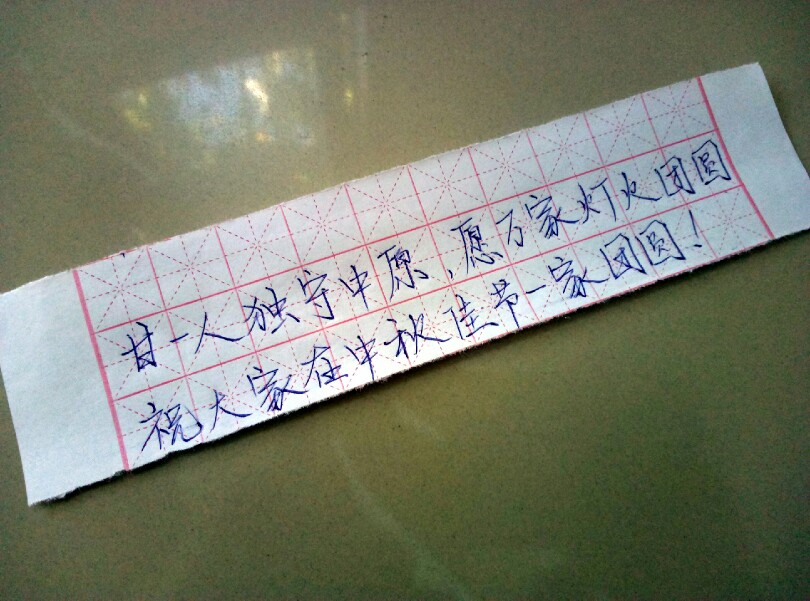 甘一人独守中原,愿万家灯火团圆
祝大家在中秋佳节一家团圆!